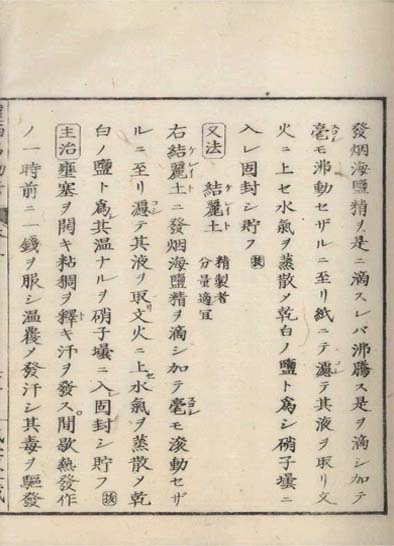 發烟海鹽精ヲ是ニ滴スレバ沸騰ス是ヲ滴シ加テ
毫モ沸動セザルニ至リ紙ニテ濾テ其液ヲ取リ文
火ニ上セ水氣ヲ蒸散メ乾白ノ鹽ト爲シ硝子壜ニ
入レ固封シ貯フ
又法 結麗土 精製者 分量適宜
右結麗土ニ發烟海鹽精ヲ滴シ加テ毫モ滾動セザ
ルニ至リ濾テ其液ヲ取文火ニ上水氣ヲ蒸散メ乾
白ノ鹽ト爲其温ナルヲ硝子壜ニ入固封シ貯フ
主治 壅塞ヲ開キ粘稠ヲ釋キ汗ヲ發ス。間歇熱發作
ノ一時前ニ一錢ヲ服シ温覆メ發汗シ其毒ヲ驅發